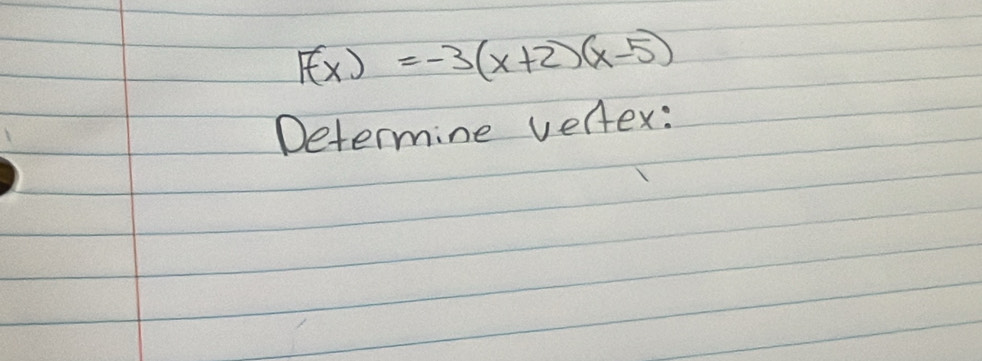 F(x) = -3(x+2)(x-5)
Determine vertex: